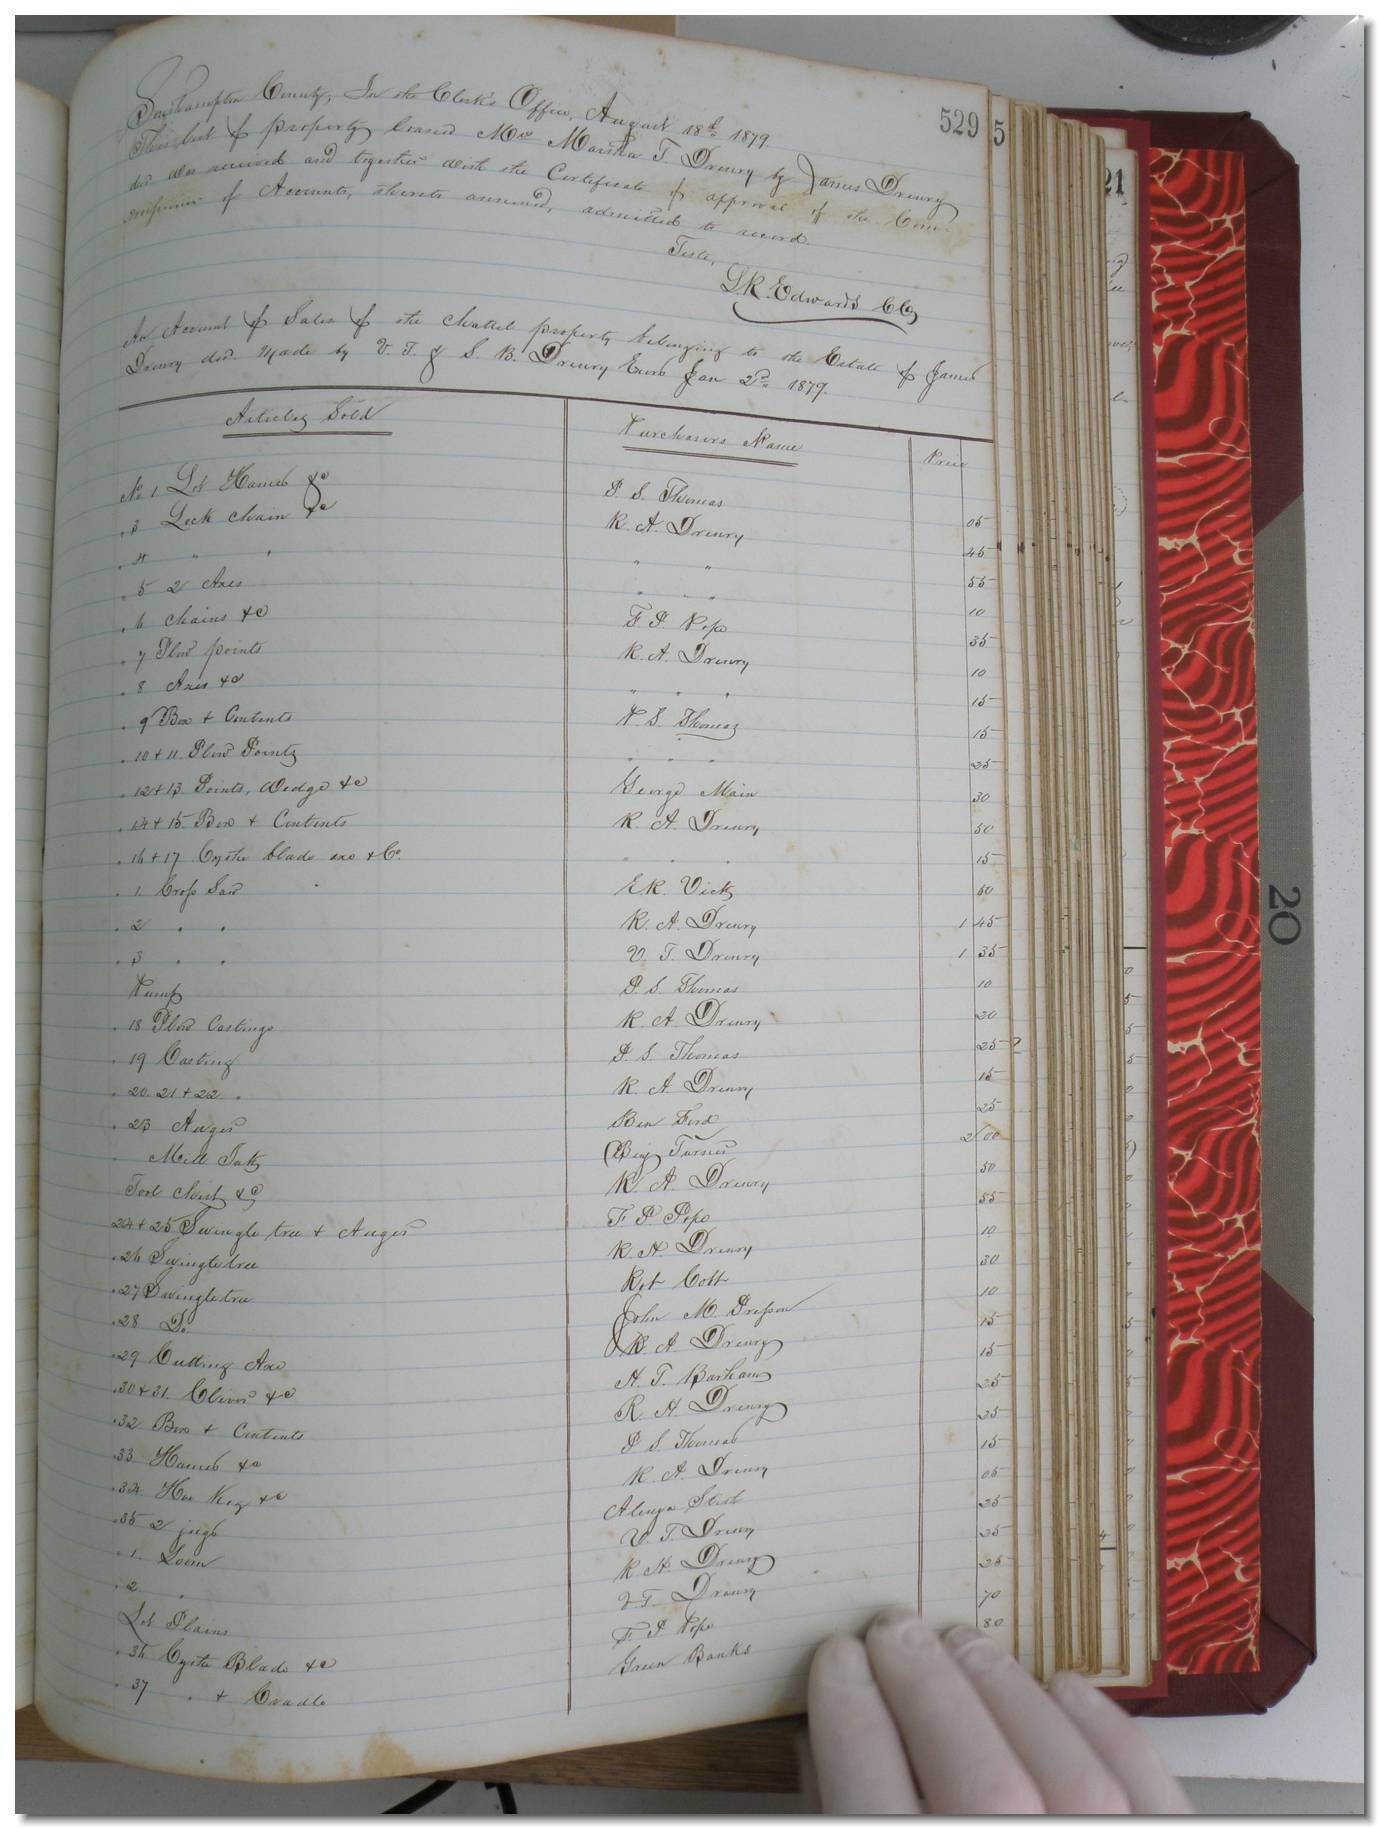 529
5
21
Southampton County, In the Clerk's Office, August 18th 1879.
This list of property loaned Mrs Martha T Drewry by James Drewry
decd was received and together with the Certificate of approval of the Comm-
issioner of Accounts, thereto annexed, admitted to record.
Teste,
L. R. Edwards CC
An Account of Sales of the chattel property belonging to the Estate of James
Drewry decd. Made by V. T. & S. B. Drewry Exors Jan 2nd 1879.
Articles Sold Purchasers Name Price
No 1 Lot Hames &c P S. Thomas 05
" 3 Lock chain &c R A Drewry 45
" 4 " " " " 55
" 5 2 Axes " " " 10
" 6 Chains &c F. P. Pope 35
" 7 Plow points R. A. Drewry 10
" 8 Axes &c " " " 15
" 9 Box + Contents P. S. Thomas 15
" 10 + 11. Plow Points " " " 25
" 12 + 13. Points, Wedge &c George Main 30
" 14 + 15. Box + Contents R. A. Drewry 50
" 16 + 17 Cythe blade axe &c. " " " 15
" 1. Cross Saw E R. Vick 50
" 2 " " R. A. Drewry 1 45
" 3 " " V. T. Drewry 1 35
Pump P. S. Thomas 10
" 18 Plow Castings R A. Drewry 20
" 19 Casting P S. Thomas 25
" 20. 21 + 22 " R A Drewry 15
" 23 Auger Ben Ford 25
" Mill Turner 2 00
Tool Chest &c R. A. Drewry 50
24 + 25 Swingle tree + Auger F. P Pope 55
" 26 Swingletree R. A. Drewry 10
" 27 Swingletree Rot Cobb 30
" 28 Do John M. 10
" 29 Cutting Axe R A Drewry 15
" 30 + 31. &c A. T. Barham 15
" 32 Box + Contents R. A. Drewry 25
" 33 Hames &c P S. Thomas 25
" 34 Hoe Keg &c R. A. Drewry 15
" 35 2 jugs 05
" 1. Loom V. T. Drewry 25
" 2. " R. A. Drewry 25
Lot Plains V T. Drewry 25
" 36 Cythe Blade &c F. P. Pope 70
" 37 " + Cradle Green Banks 80
20